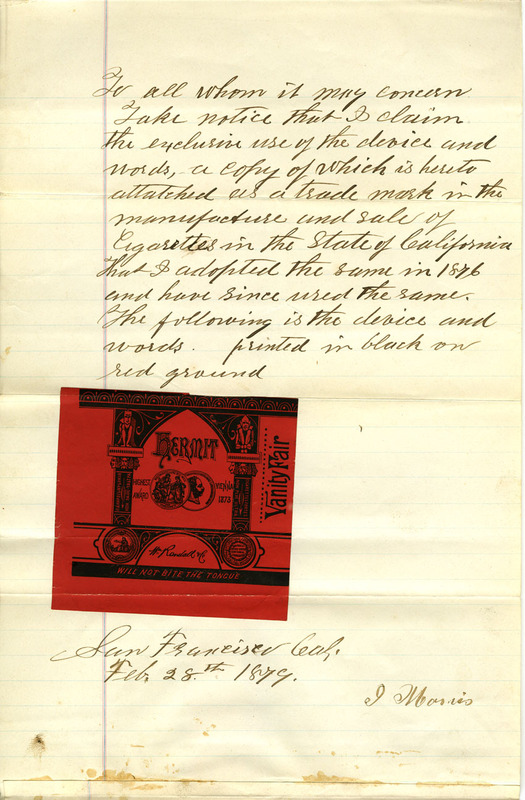 To all whom it may concern
Take notice that I claim
the exclusive use of the device and
words, a copy of which is hereto
attatched as a trade mark in the
manufacture and sale of
Cigarettes in the State of California
that I adopted the same in 1876
and have since used the same.
The following is the device and
words. printed in black on
red ground
HERMIT
HIGHEST AWARD
VIENNA 1873
Vanity Fair
Wm Kimball & Co
WILL NOT BITE THE TONGUE
San Francisco Cal,
Feb. 28th 1879.
I Morris